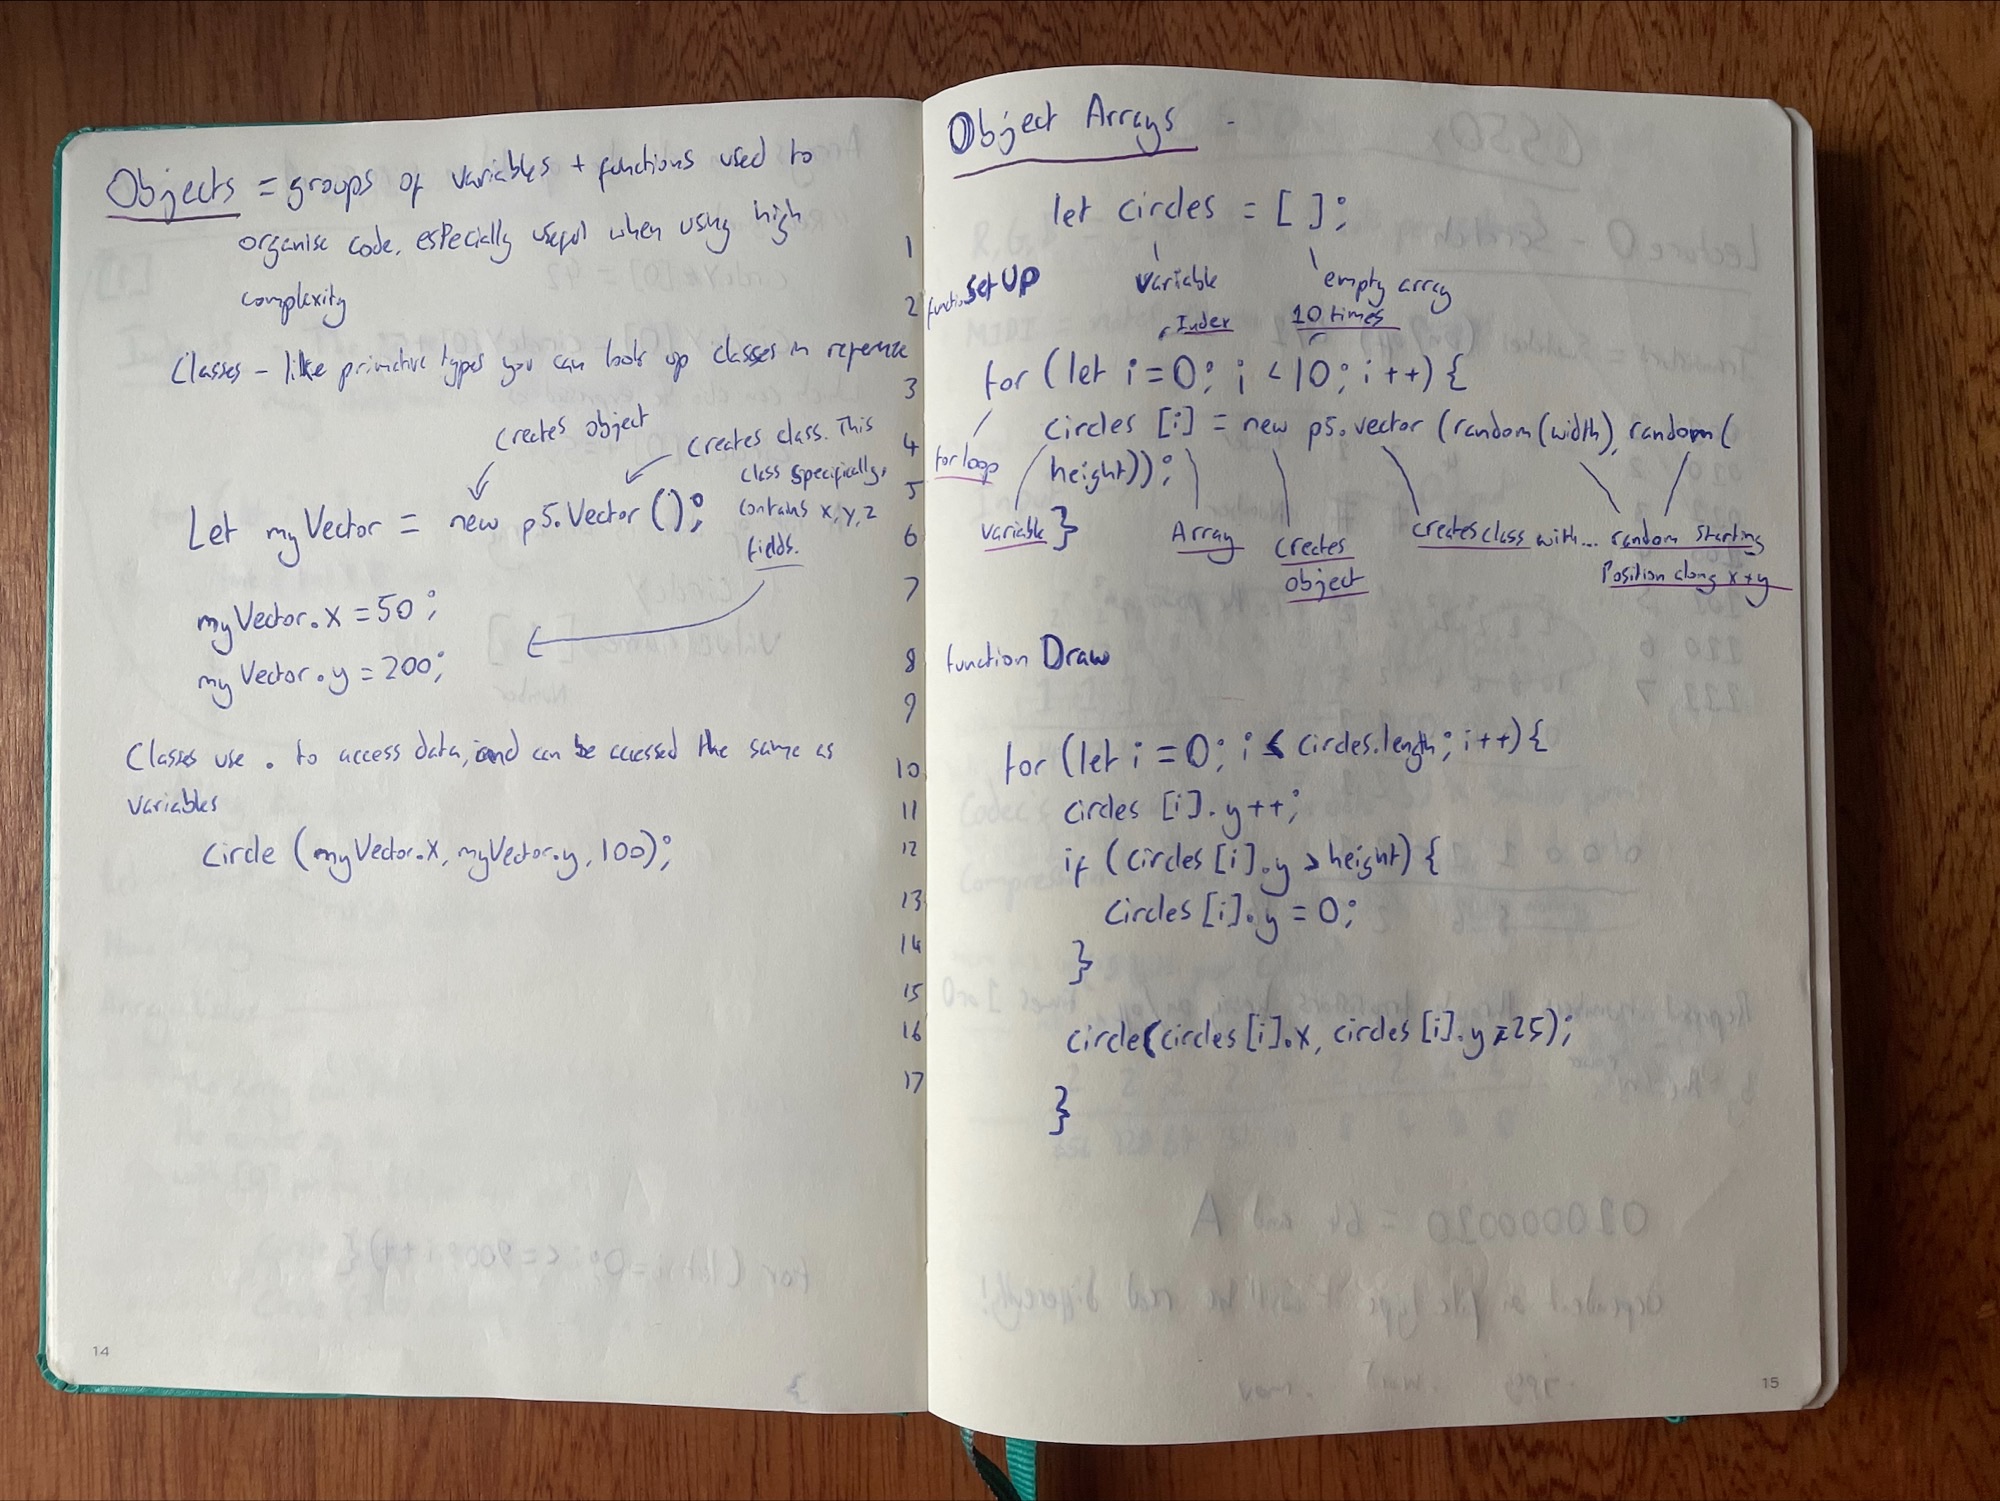 Objects = groups of variables + functions used to
organise code, especially useful when using high
complexity
Classes - like primitive types you can look up classes in reference
creates object
creates class. This
class specifically.
contains x, y, z
fields.
Let myVector = new p5.Vector();
myVector.x = 50;
myVector.y = 200;
Classes use . to access data, and can be accessed the same as
variables
Circle (myVector.x, myVector.y, 100);
14
Object Arrays -
1 let circles = [ ];
variable
empty array
2 function Set Up
Index
10 times
3 for (let i = 0; i < 10; i++) {
4 circles [i] = new p5.vector (random(width), random(
5 height));
for loop
6 }
variable
Array
creates
object
creates class with... random starting
Position along x + y
7
8 function Draw
9
10 for (let i = 0; i < circles.length; i++) {
11 circles [i].y++;
12 if (circles [i].y > height) {
13 circles [i].y = 0;
14 }
15
16 circle(circles [i].x, circles [i].y, 25);
17 }
15